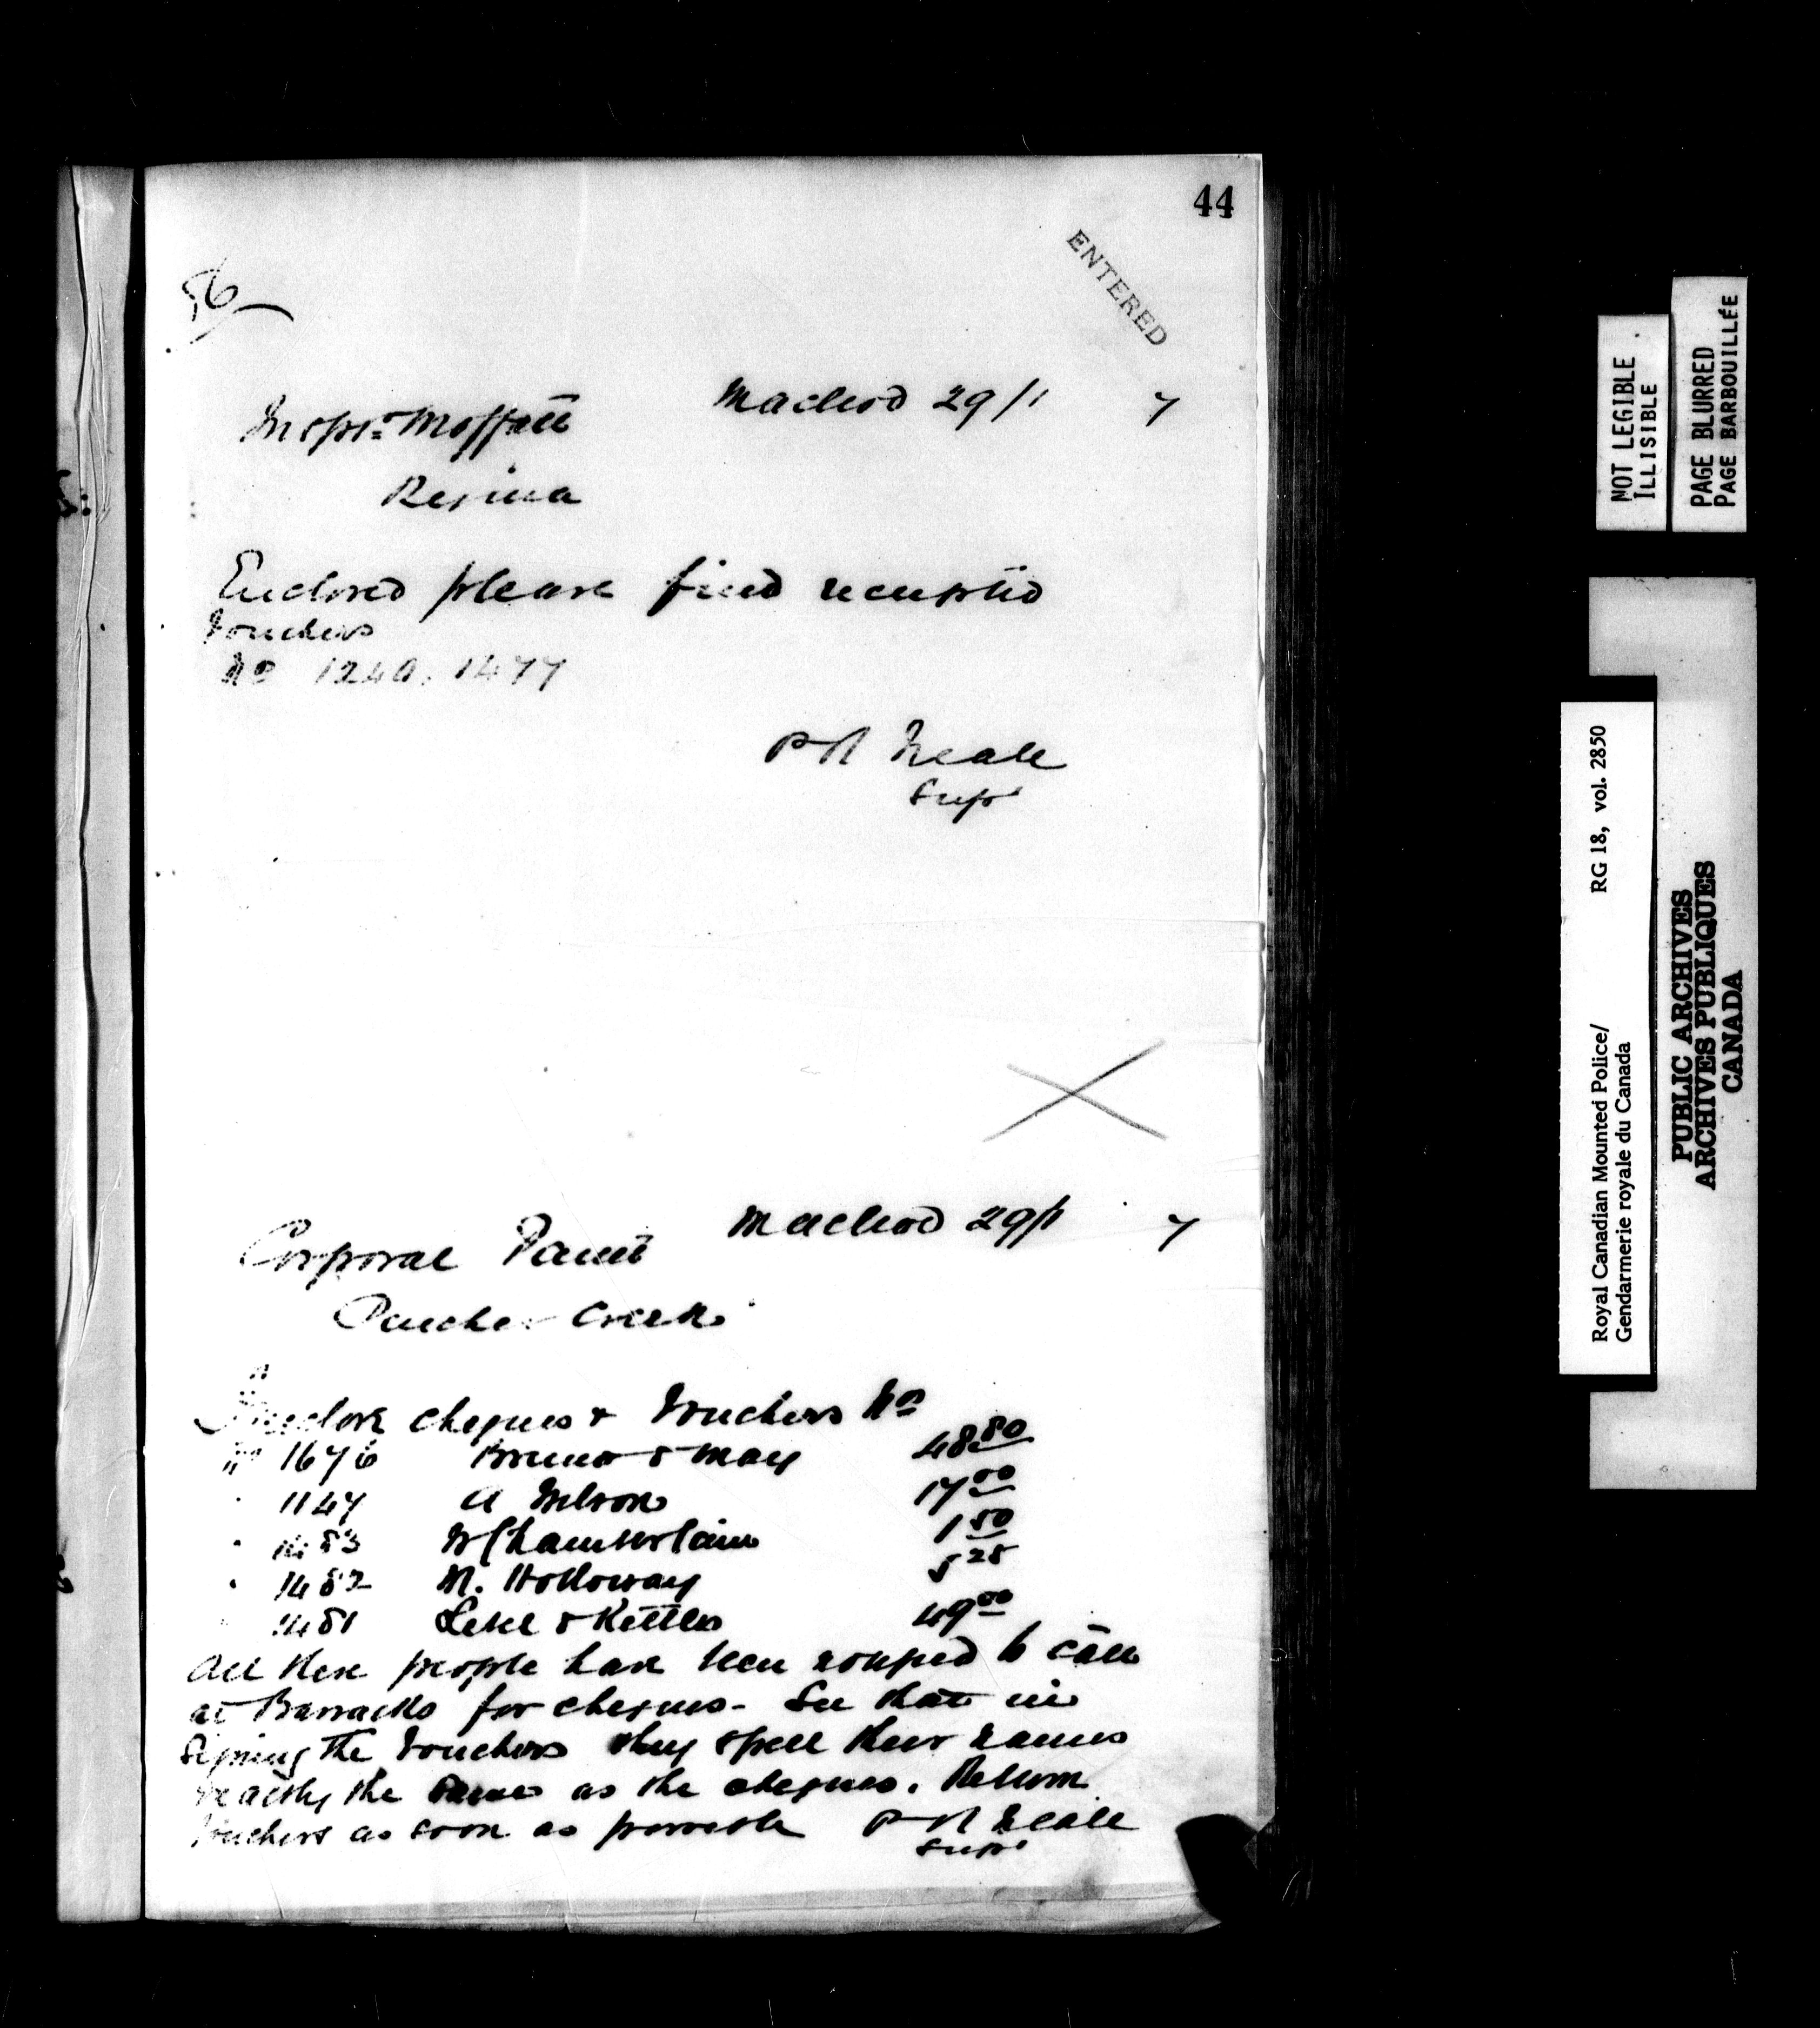 44
ENTERED
56
Macleod 29/1 7
Inspr. Moffatt
Regina
Enclosed please find receipted
Vouchers
No 1477
P R Neale
Supt
Macleod 29/1 7
Corporal
Pincher Creek
Enclose cheques & Vouchers No
1676 Bruneau & May 48 80
1147 A Wilson 17 00
1483 W Chamberlain 1 50
1482 N. Holloway 5 25
1481 Lebel & Kettles 49 00
All these people have been notified to call
at Barracks for cheques - See that in
signing the Vouchers they spell their names
exactly the same as the cheques. Return
Vouchers as soon as possible P R Neale
Supt
NOT LEGIBLE
ILLISIBLE
PAGE BLURRED
PAGE BARBOUILLÉE
Royal Canadian Mounted Police/ RG 18, vol. 2850
Gendarmerie royale du Canada
PUBLIC ARCHIVES
ARCHIVES PUBLIQUES
CANADA